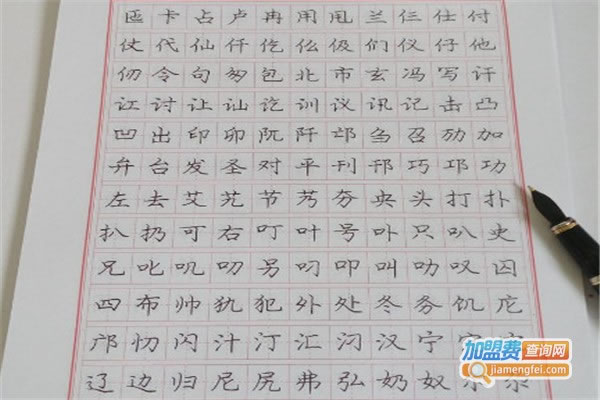 匼卡占卢冉用甩兰仨仕付
仗代仙仟仡仫伋们仪仔他
仞令句匆包北市玄冯写讦
讧讨让讪讫训议讯记击凸
凹出印卯阮阡邙刍召劢加
弁台发圣对平刊邗巧邛功
左去艾艽节艿夯央头打扑
扒扔可右叮叶号卟只叭史
兄叱叽叨另叼叩叫叻叹囚
四布帅犰犯外处冬务饥庀
邝忉闪汁汀汇汈汉宁
辽边归尼尻弗弘奶奴
加盟费查询网
jiamengfei.com